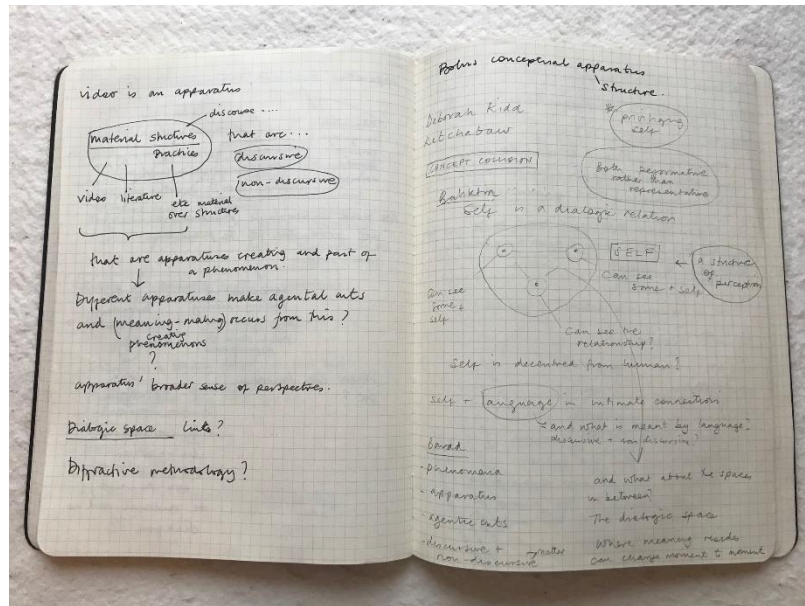 video is an apparatus
discourse ....
material structures
practices
that are ...
discursive
non-discursive
video literature etc material
over structures
that are apparatuses creating and part of
a phenomenon.
Different apparatuses make agental cuts
and (meaning-making) occurs from this?
creative
phenomenons
?
apparatus' broader sense of perspectives.
Dialogic space links?
Diffractive methodology?
Bohrs conceptual apparatus
structure.
Deborah Kidd
privileging
self
CONCEPT COLLISION
Both performative
rather than
representative
Bahktin
Self is a dialogic relation
SELF
Can see
some + self
a structure
of perception
Can see
some +
self
Can see the
relationship?
Self is decentred from human?
self + language in intimate connection
and what is meant by language?
discursive + non discursive?
Barad
- phenomena
- apparatus
- agentic cuts
- discursive +
non-discursive
and what about the spaces
in between?
The dialogic space
Where meaning resides
can change moment to moment